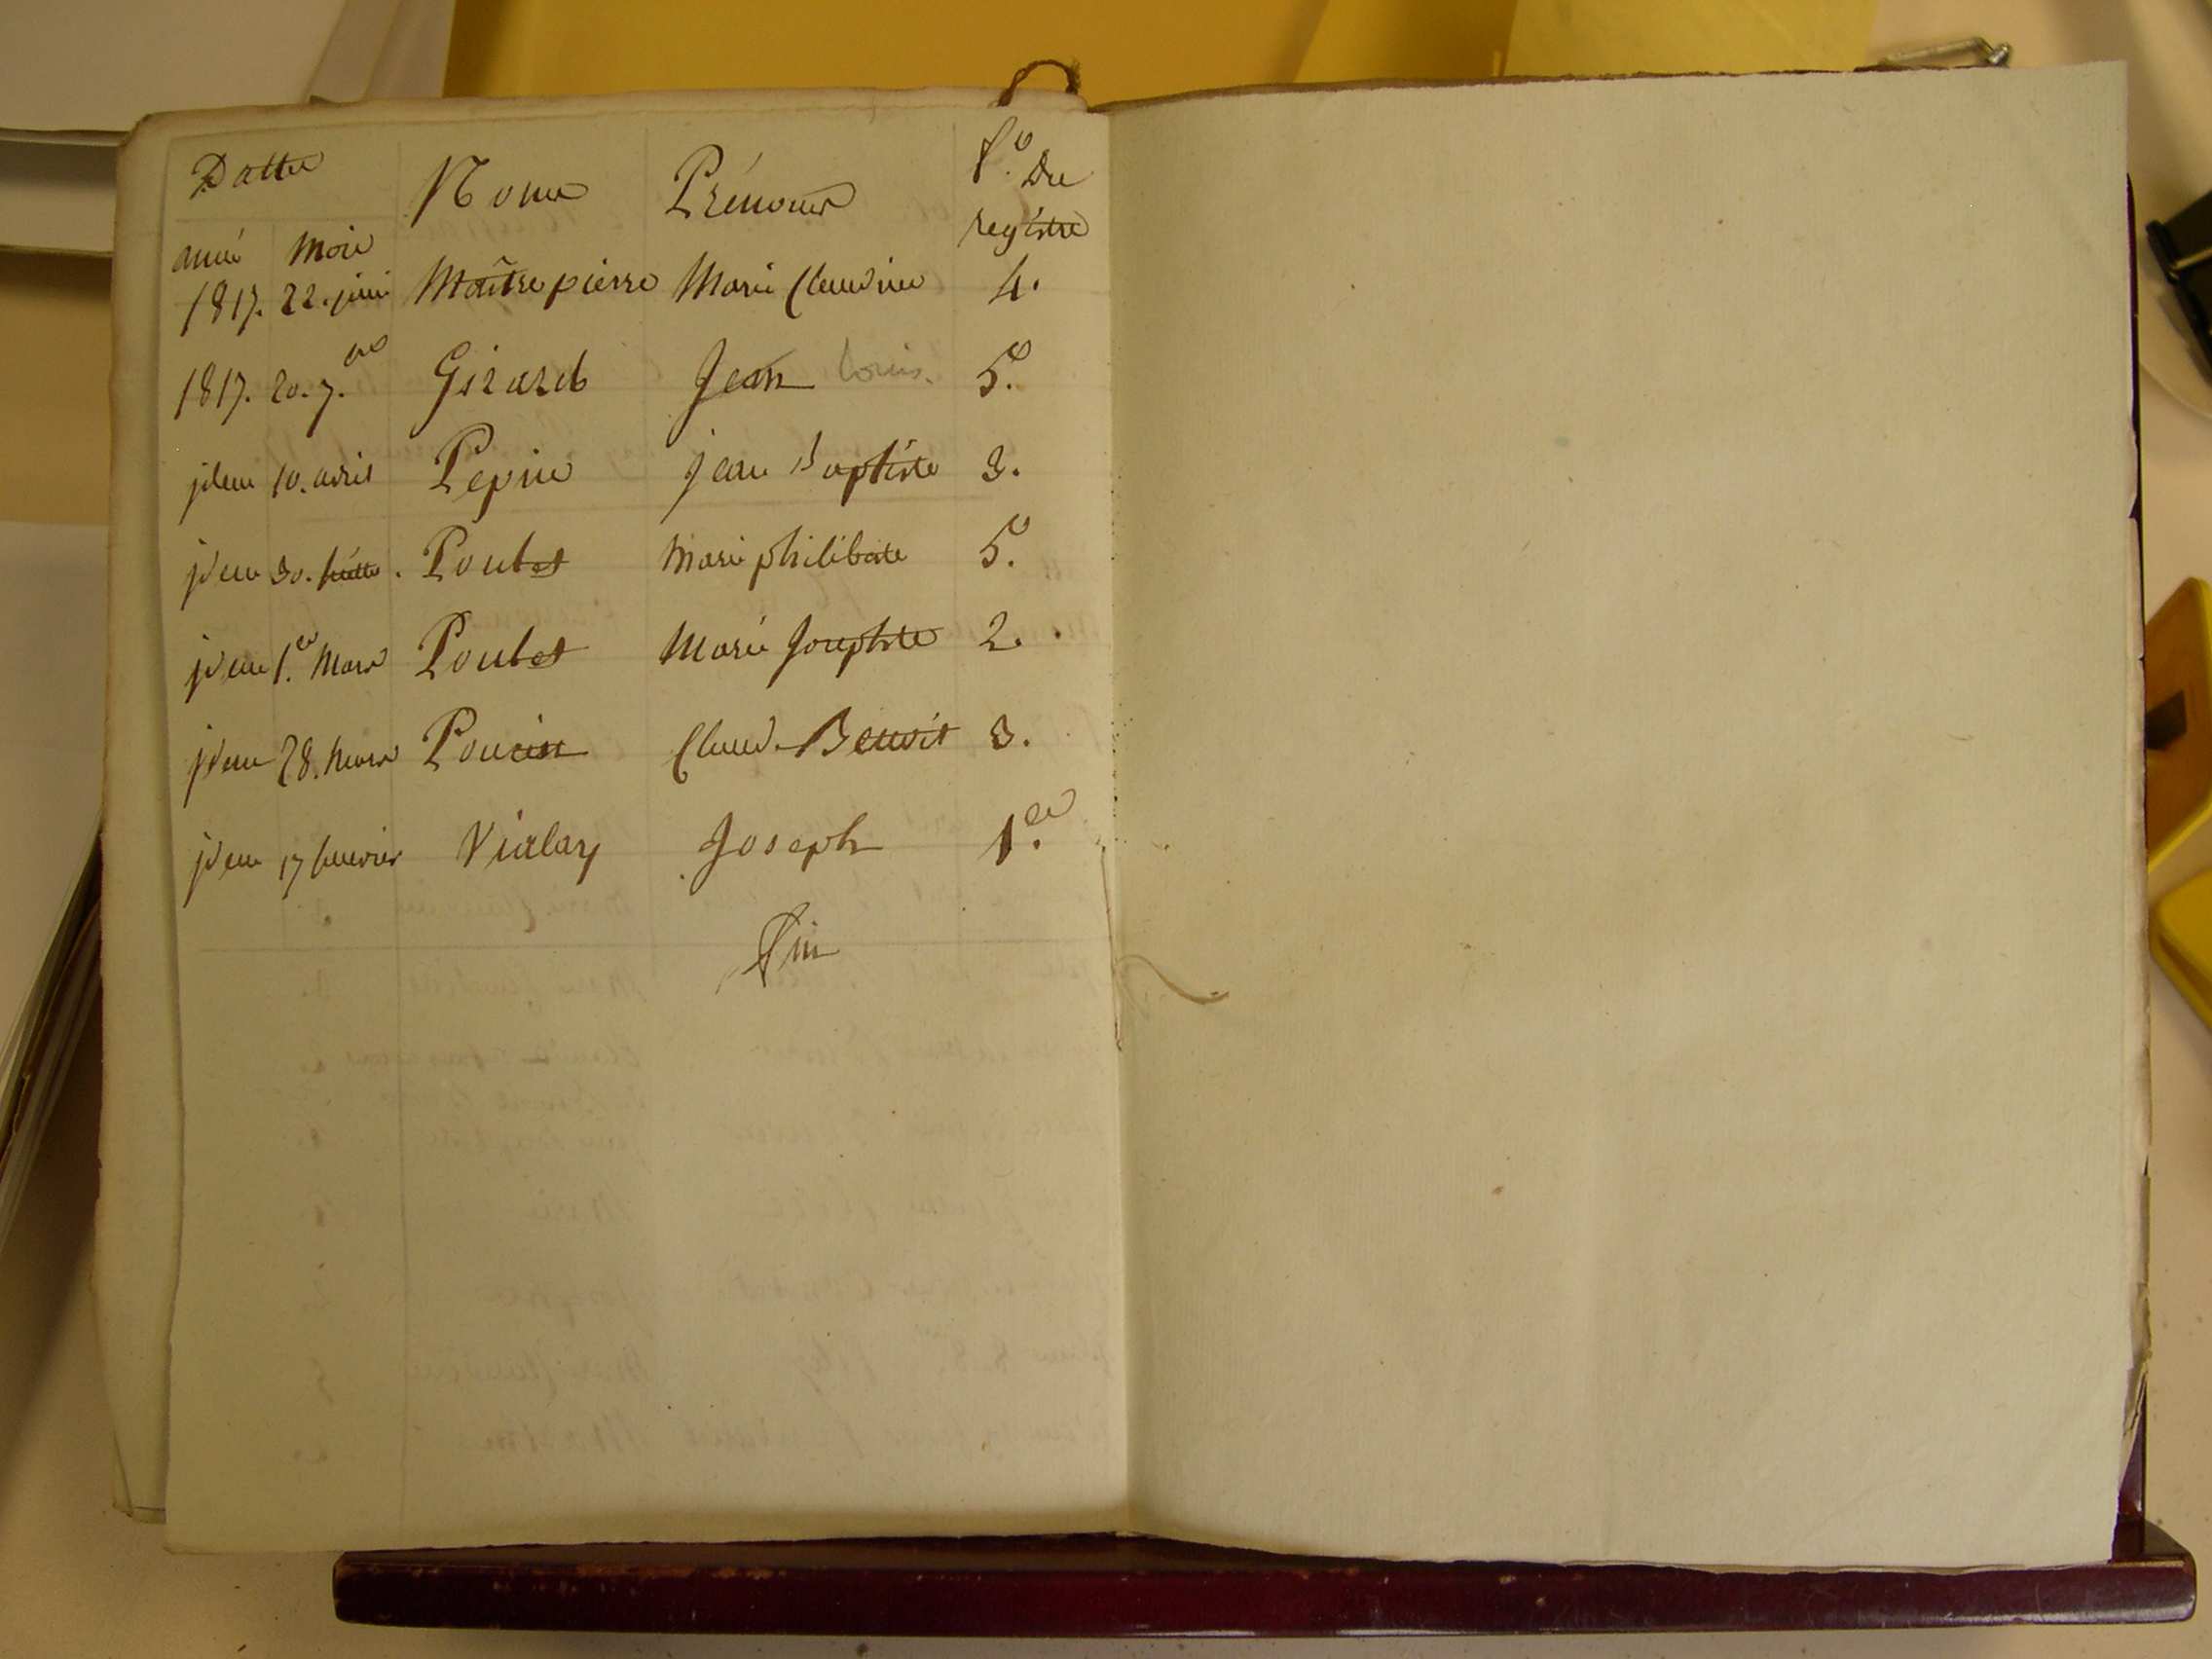 Dattes
Noms Prénoms f.o Du
registre
année Mois
1817. 22. juin Maîtrepierre Marie Claudine 4.
1817. 20. 7.bre Girard Jean Louis. 5.e
idem 10. avril Pepin jean Baptiste 3.
idem 30. juillet. Poubet Marie philiberte 5.e
idem 1.er Mars Poubet Marie Josephte 2.
idem 28. Mars Poncin Claude Benoit 3.
idem 17 fevrier Vialay Joseph 1.er
Fin